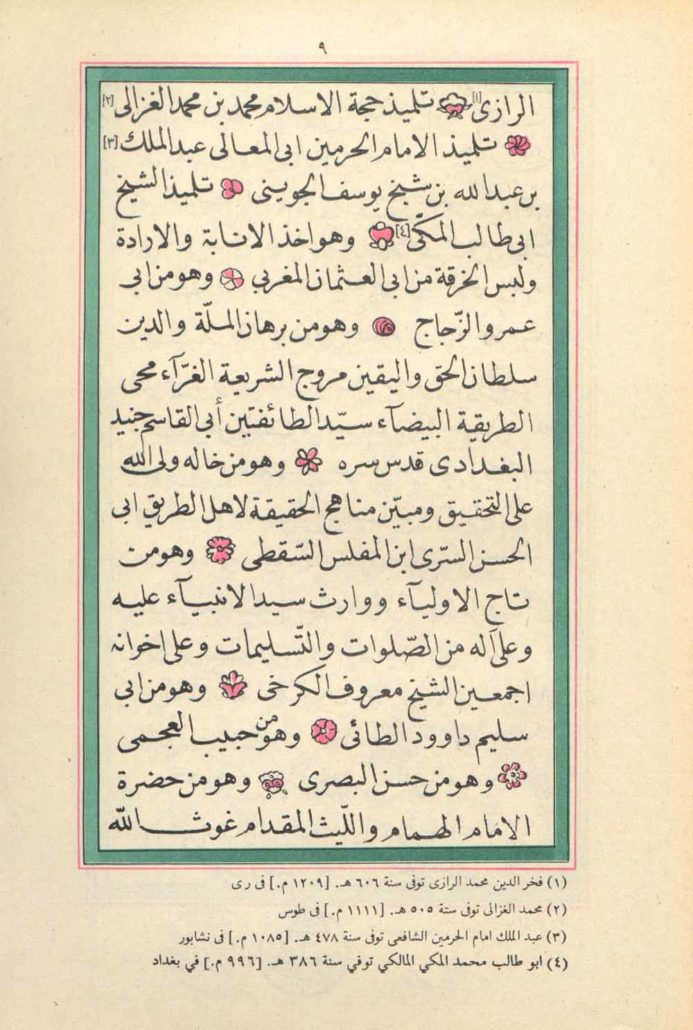 ٩
الرازى[١] تلميذ حجة الاسلام محمد بن محمد الغزالى[٢]
تلميذ الامام الحرمين ابى المعالى عبد الملك[٣]
بن عبد الله بن شيخ يوسف الجوينى تلميذ الشيخ
ابى طالب المكّى[٤] وهو اخذ الانابة والارادة
ولبس الخرقة من ابى العثمان المغربي وهو من ابى
عمرو الزّجاج وهو من برهان الملّة والدين
سلطان الحق واليقين مروج الشريعة الغرّآء محى
الطريقة البيضآء سيّد الطائفتين أبي القاسم جنيد
البغدادى قدس سره وهو من خاله ولى الله
على التحقيق ومبيّن مناهج الحقيقة لاهل الطريق ابى
الحسن السرّى ابن المفلس السّقطى وهو من
تاج الاوليآء ووارث سيد الانبيآء عليه
وعلى آله من الصّلوات والتّسليمات وعلى اخوانه
اجمعين الشيخ معروف الكرخى وهو من ابى
سليم داوود الطائى وهو من حبيب العجمى
وهو من حسن البصرى وهو من حضرة
الامام الهمام واللّيث المقدام غوث الله
(١) فخر الدين محمد الرازى توفى سنة ٦٠٦ هـ. [١٢٠٩ م.] فى رى
(٢) محمد الغزالى توفى سنة ٥٠٥ هـ. [١١١١ م.] فى طوس
(٣) عبد الملك امام الحرمين الشافعى توفى سنة ٤٧٨ هـ. [١٠٨٥ م.] فى نشابور
(٤) ابو طالب محمد المكي المالكي توفي سنة ٣٨٦ هـ. [٩٩٦ م.] في بغداد